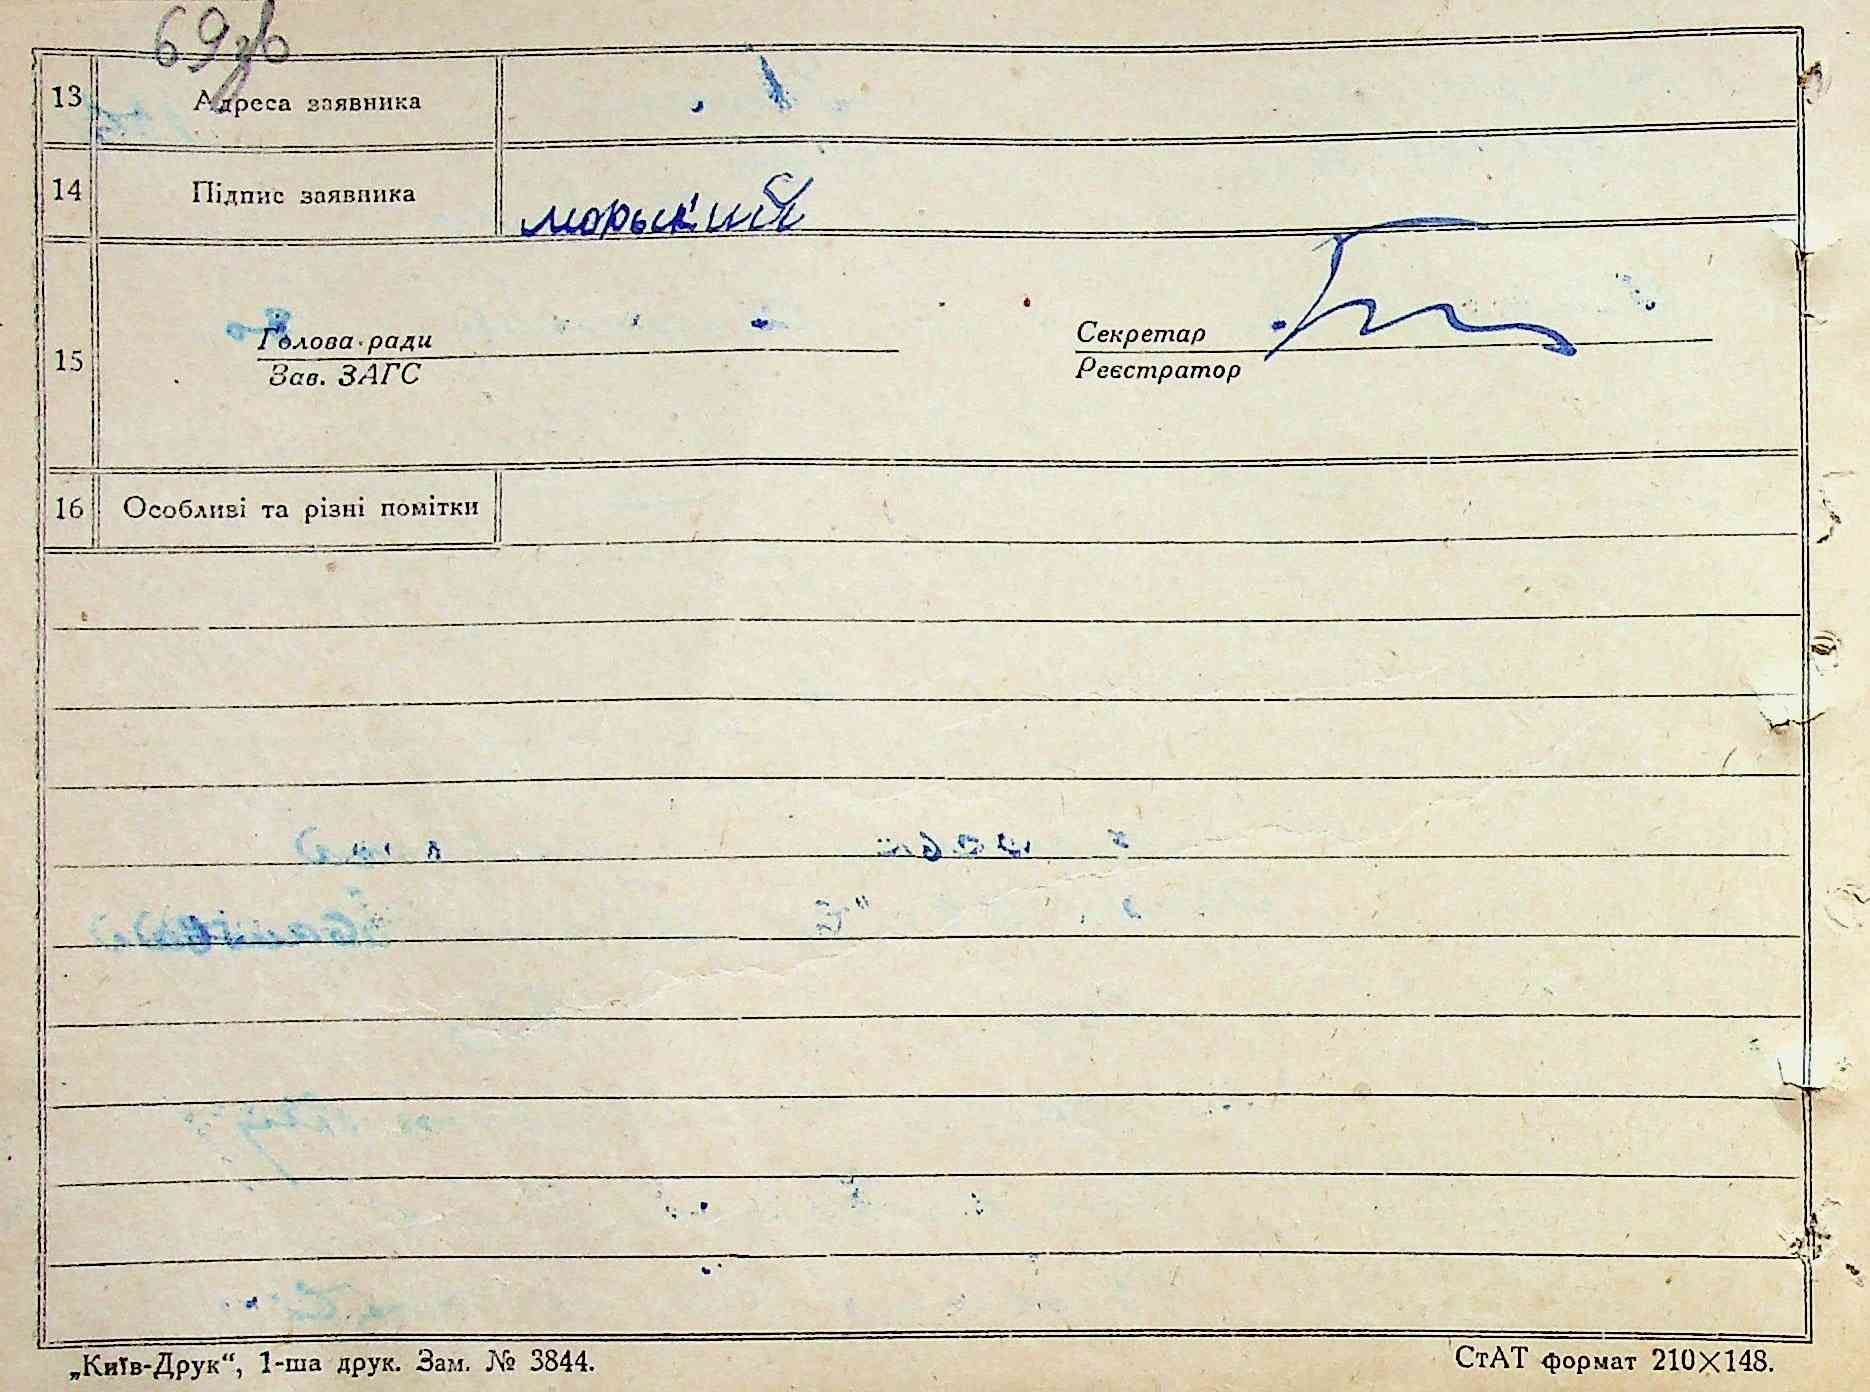 69зв
13 Адреса заявника
14 Підпис заявника морьский
15 Голова ради Секретар
Зав. ЗАГС Реєстратор
16 Особливі та різні помітки
„Київ-Друк“, 1-ша друк. Зам. № 3844. СтАТ формат 210×148.